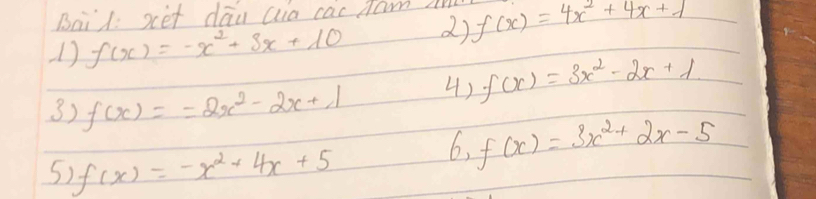 Bài 1: xét dấu của các tam
1) f(x) = -x² + 3x + 10
2) f(x) = 4x² + 4x + 1
3) f(x) = = 2x² - 2x + 1
4) f(x) = 3x² - 2x + 1
5) f(x) = -x² + 4x + 5
6, f(x) = 3x² + 2x - 5